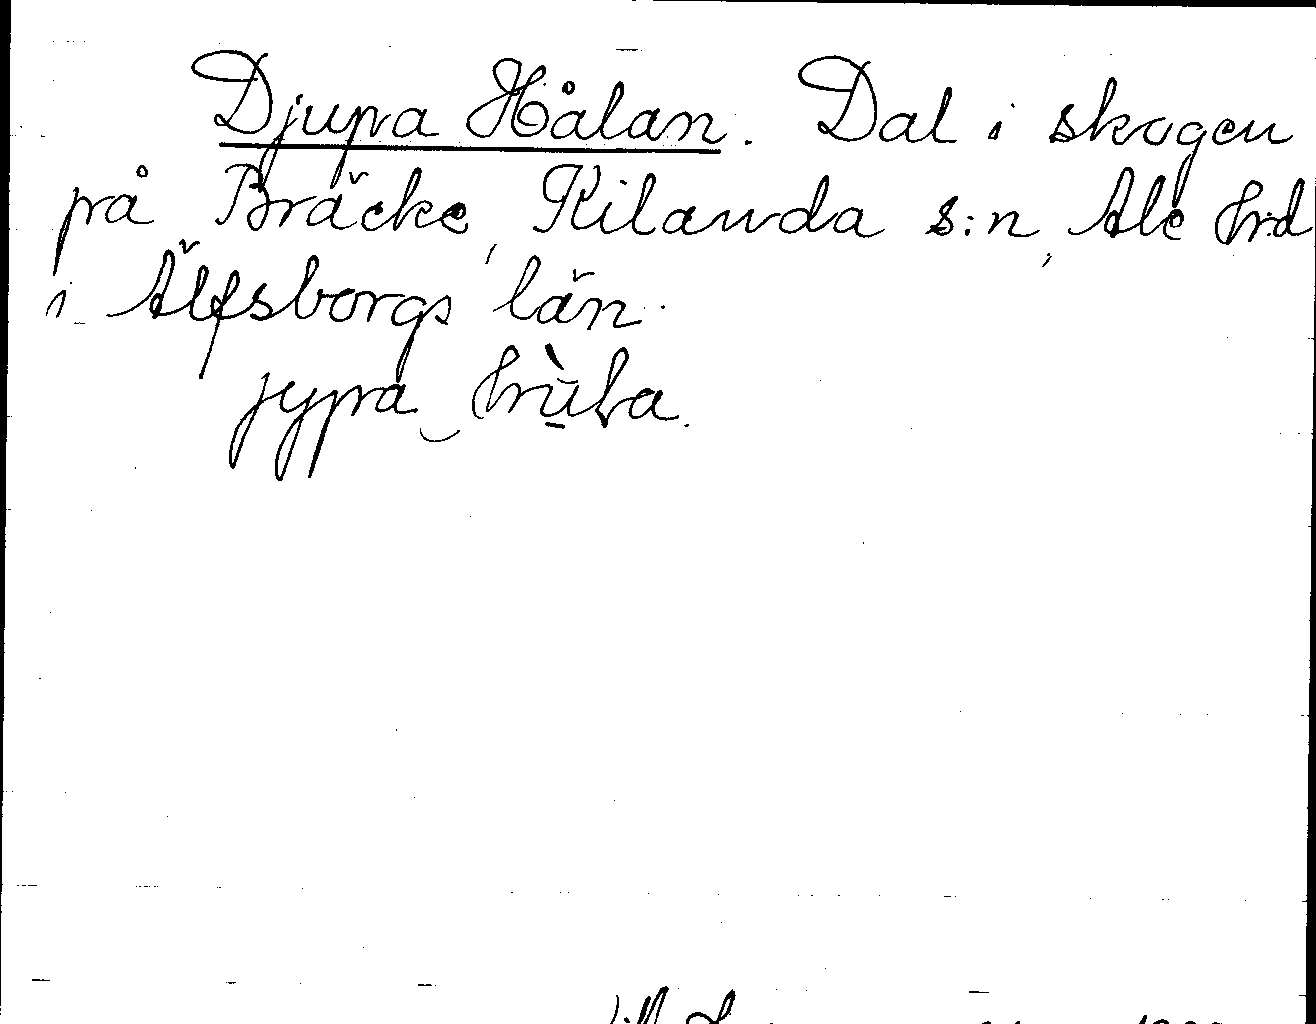 Djupa Hålan. Dal i skogen
på Bräcke, Kilanda s:n, Ale hrd
i Älfsborgs län.